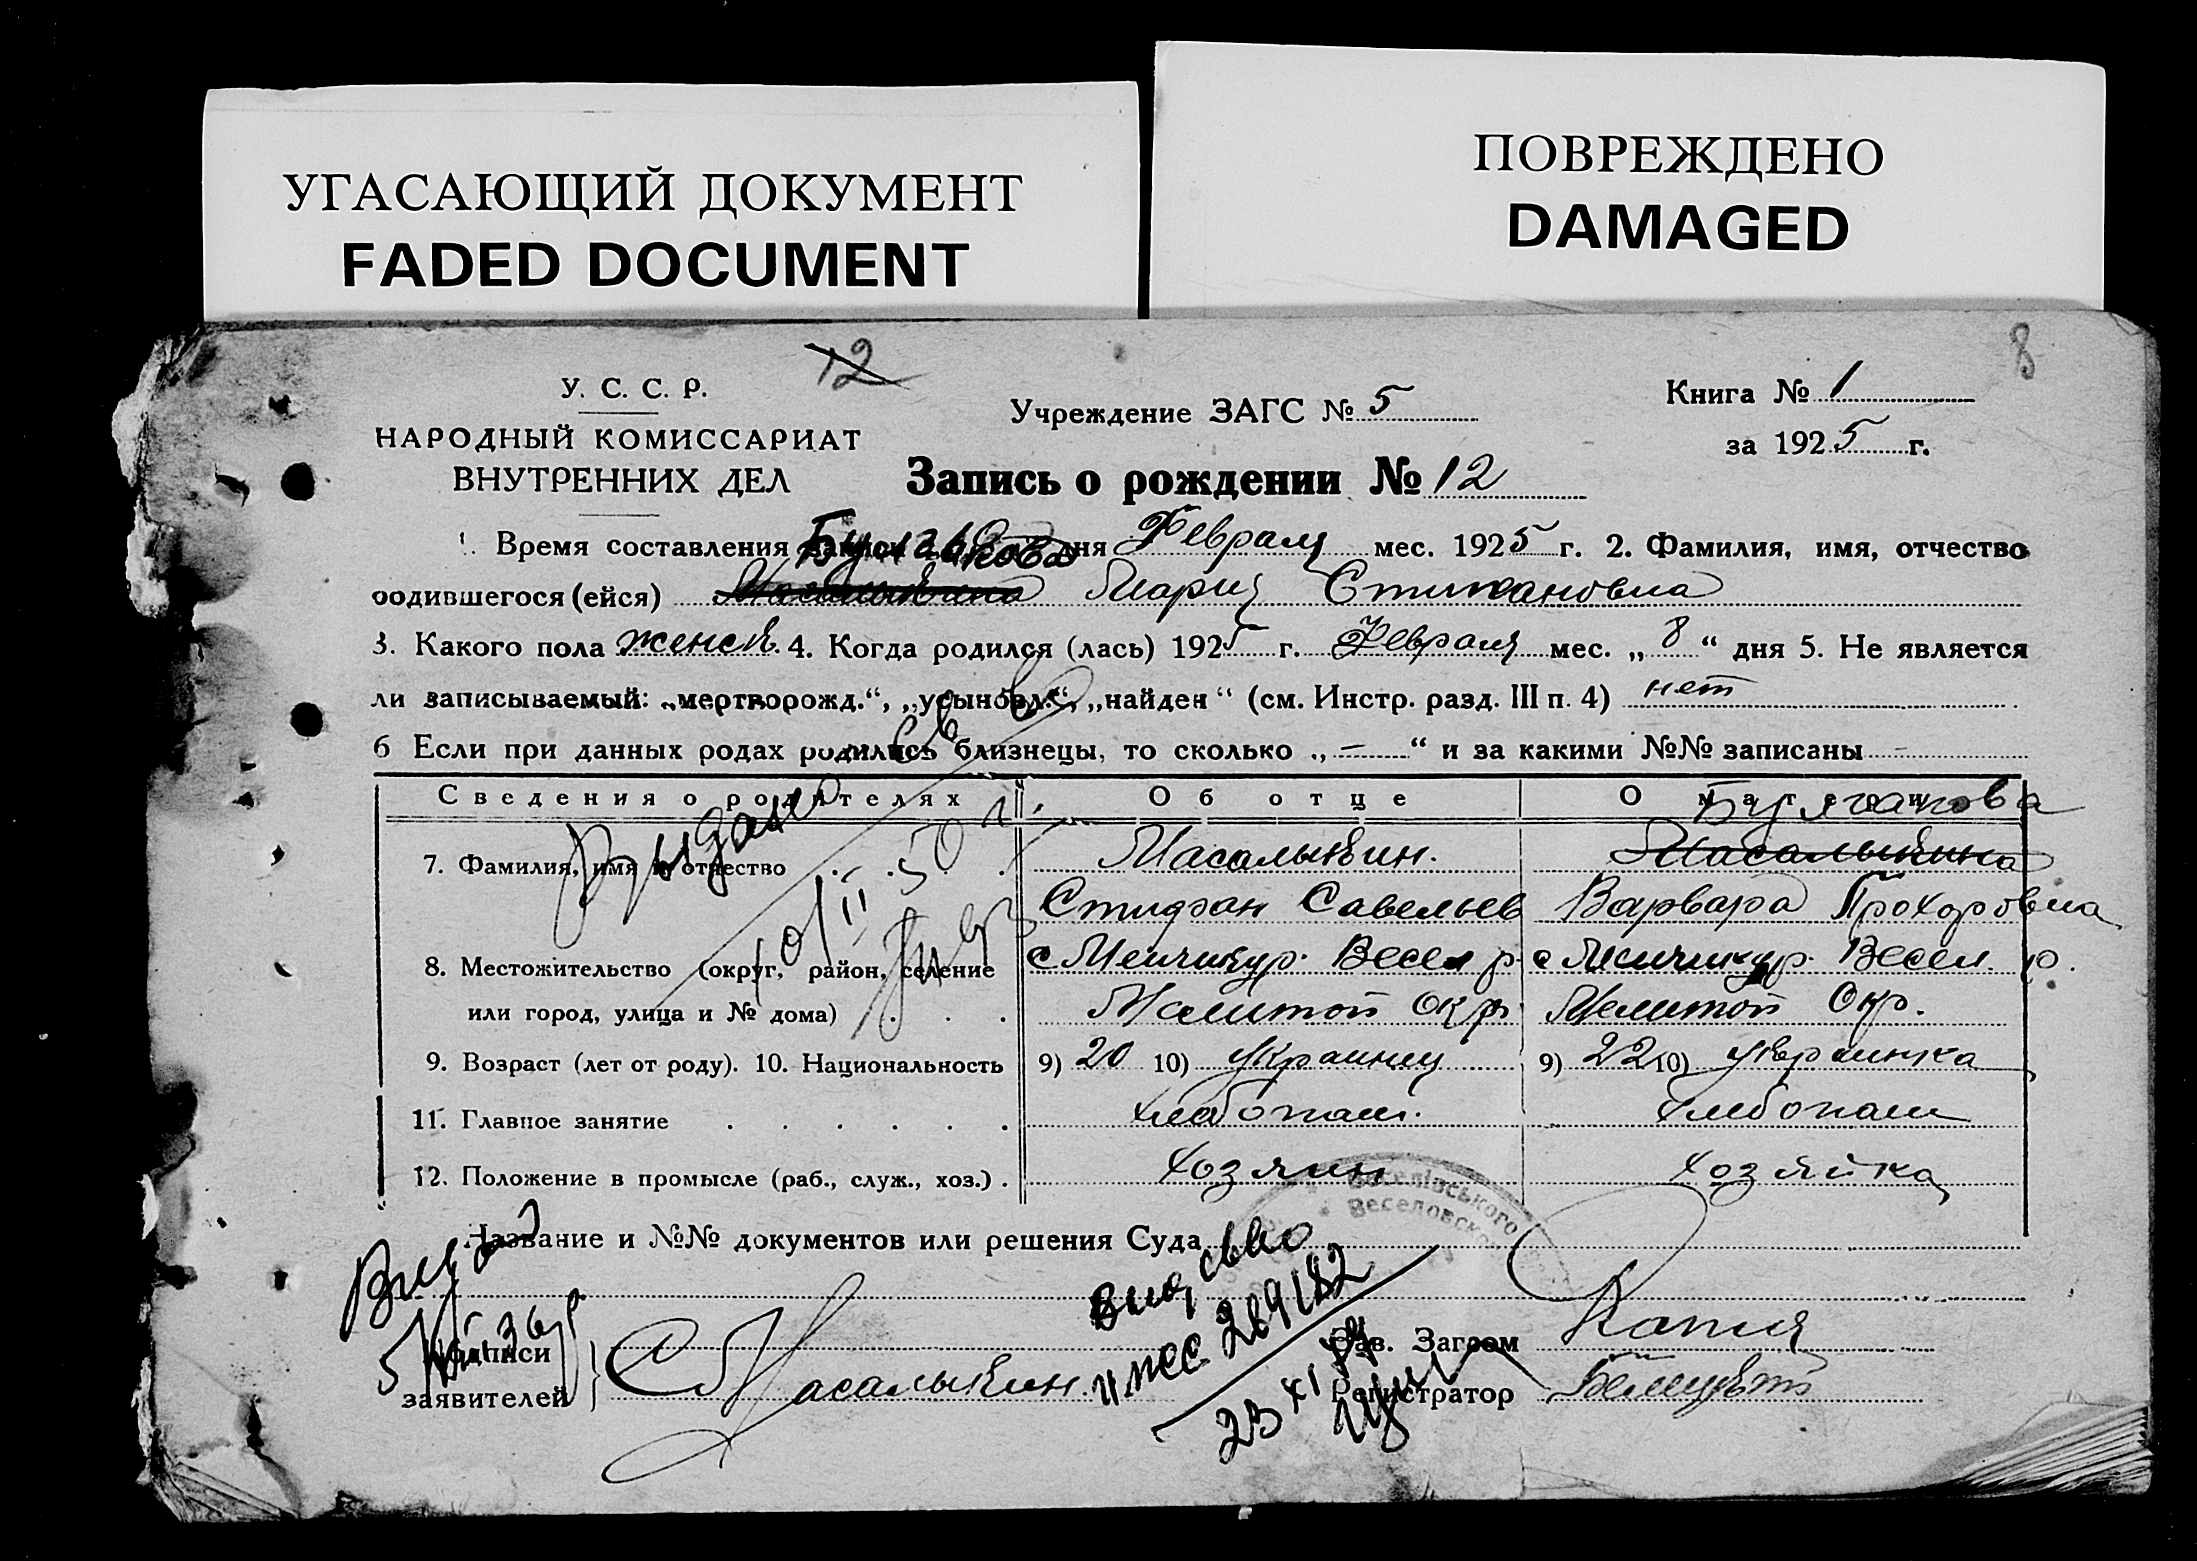 УГАСАЮЩИЙ ДОКУМЕНТ
FADED DOCUMENT
ПОВРЕЖДЕНО
DAMAGED
12
8
У. С. С. Р.
НАРОДНЫЙ КОМИССАРИАТ
ВНУТРЕННИХ ДЕЛ
Учреждение ЗАГС № 5
Книга № 1
за 1925 г.
Запись о рождении № 12
1. Время составления дня Февраля мес. 1925 г. 2. Фамилия, имя, отчество
родившегося (ейся) Мария
3. Какого пола женск. 4. Когда родился (лась) 1925 г. Февраля мес. „ 8 “ дня 5. Не является
ли записываемый: „мертворожд.“, „усыновл.“, „найден“ (см. Инстр. разд. III п. 4) нет
6 Если при данных родах родились близнецы, то сколько „ – “ и за какими №№ записаны –
Сведения о родителях Об отце О матери
7. Фамилия, имя и отчество Масалыкин. Масалыкина
Савельев Варвара Прохоровна
8. Местожительство (округ, район, селение с Весел р. с Весел. р.
или город, улица и № дома) Окр. Окр.
9. Возраст (лет от роду). 10. Национальность 9) 20 10) Украинец 9) 22 10) Украинка
11. Главное занятие хлебопаш. хлебопаш
12. Положение в промысле (раб., служ., хоз.) . хозяин хозяйка
Выдано
Веселівського
Веселовского
Название и №№ документов или решения Суда
269182
Подписи
заявителей } Масалыкин.
23 XI
Зав. Загсом
Регистратор